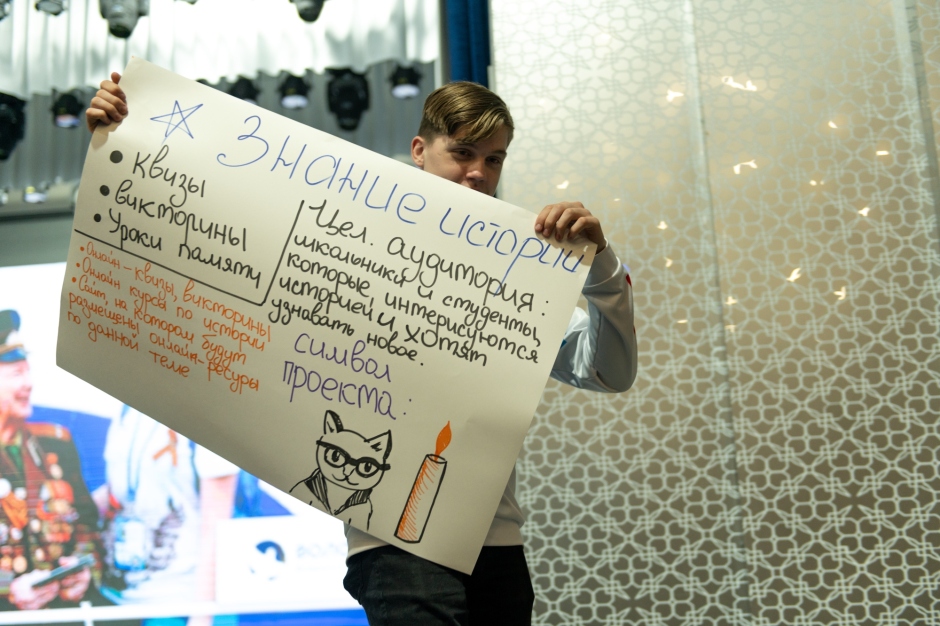 Знание истории
• квизы
• викторины
• Уроки памяти
• Онлайн-квизы, викторины
• Онлайн курса по истории
• Сайт, на котором будут
размещены онлайн-ресуры
по данной теме
Цел. аудитория:
школьники и студенты,
которые интерисуются
историей и хотят
узнавать новое.
символ
проекта: